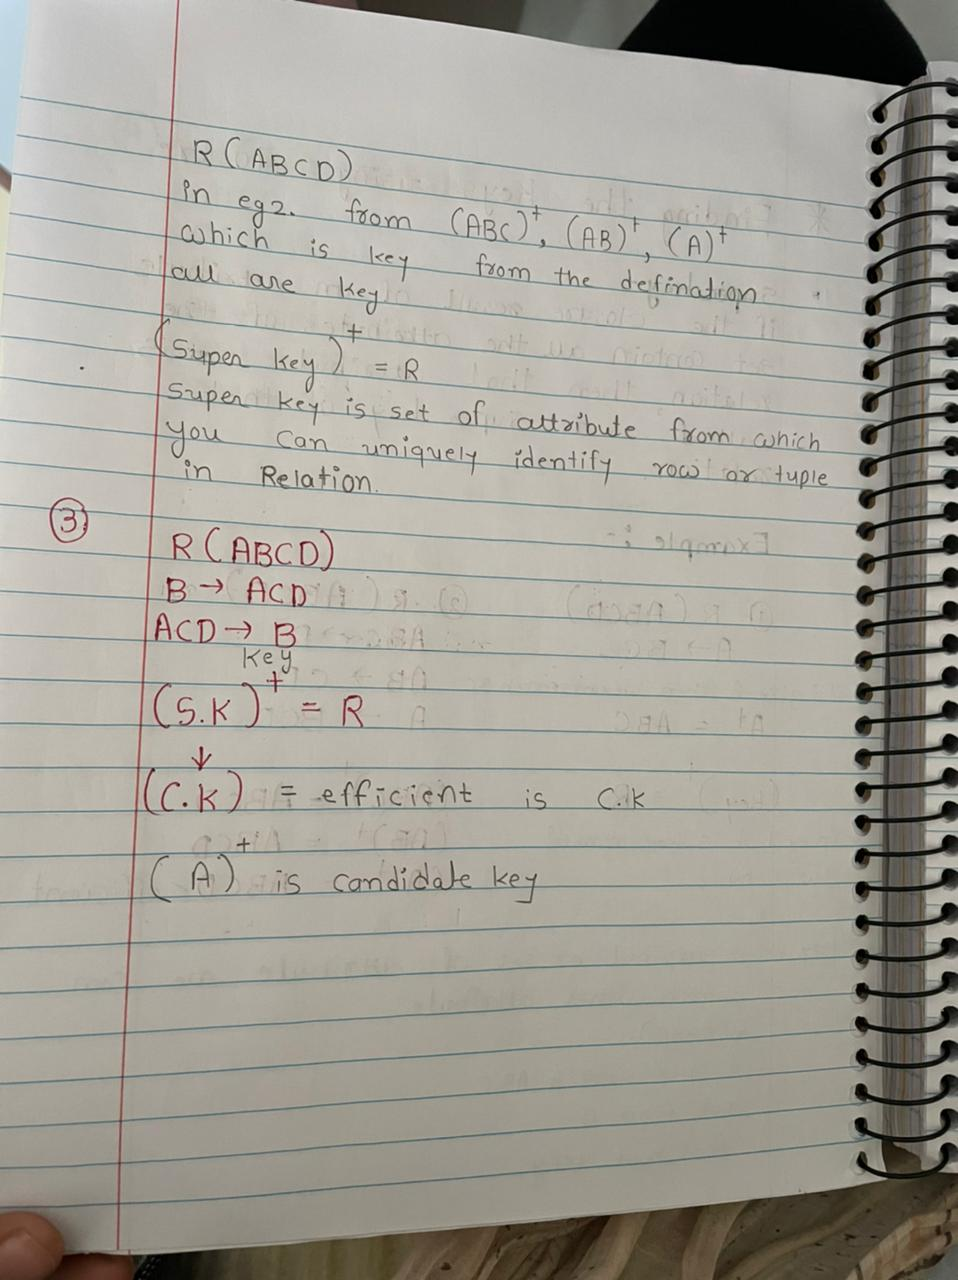 R(ABCD)
in eg2. from (ABC)⁺, (AB)⁺, (A)⁺
which is key from the defination
all are key
(Super key)⁺ = R
Super key is set of attribute from which
you can uniquely identify row or tuple
in Relation.
③
R(ABCD)
B → ACD
ACD → B
key
(S.K)⁺ = R
↓
(C.K) = efficient is C.K
(A)⁺ is candidate key